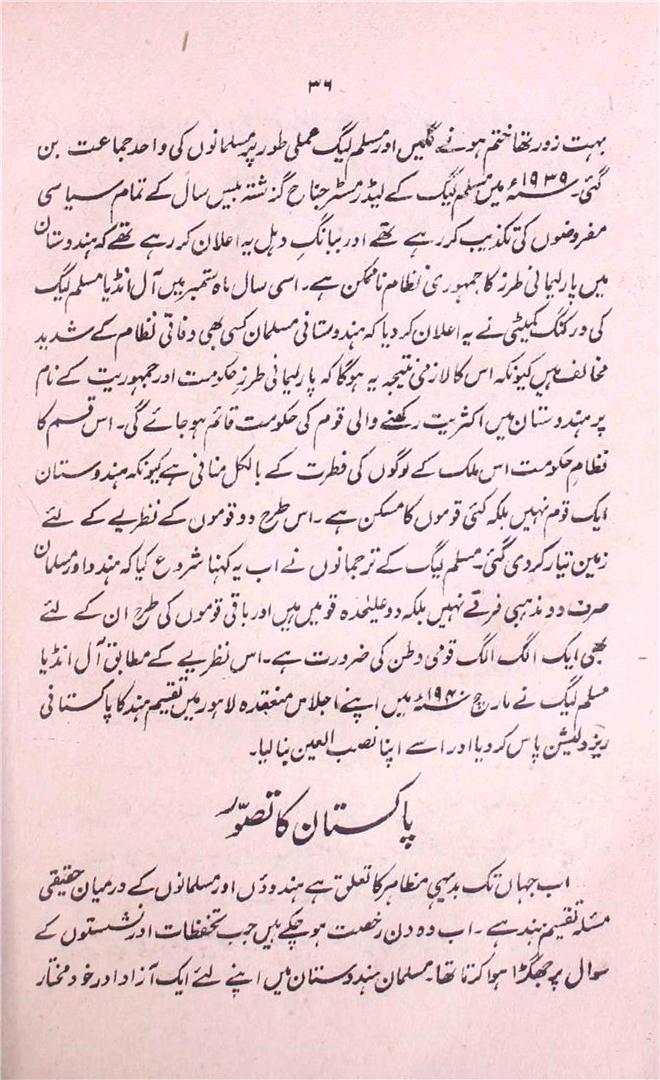 ۳۶
بہت زور تھا ختم ہونے لگیں اور مسلم لیگ عملی طور پر مسلمانوں کی واحد جماعت بن
گئی۔ ۱۹۳۹ء میں مسلم لیگ کے لیڈر مسٹر جناح گزشتہ بیس سال کے تمام سیاسی
مفروضوں کی تکذیب کر رہے تھے اور ببانگِ دہل یہ اعلان کر رہے تھے کہ ہندوستان
میں پارلیمانی طرز کا جمہوری نظام ناممکن ہے۔ اسی سال ماہ ستمبر میں آل انڈیا مسلم لیگ
کی ورکنگ کمیٹی نے یہ اعلان کر دیا کہ ہندوستانی مسلمان کسی بھی وفاقی نظام کے شدید
مخالف ہیں کیونکہ اس کا لازمی نتیجہ یہ ہوگا کہ پارلیمانی طرزِ حکومت اور جمہوریت کے نام
پر ہندوستان میں اکثریت رکھنے والی قوم کی حکومت قائم ہو جائے گی۔ اس قسم کا
نظامِ حکومت اس ملک کے لوگوں کی فطرت کے بالکل منافی ہے کیونکہ ہندوستان
ایک قوم نہیں بلکہ کئی قوموں کا مسکن ہے۔ اس طرح دو قوموں کے نظریے کے لئے
زمین تیار کر دی گئی۔ مسلم لیگ کے ترجمانوں نے اب یہ کہنا شروع کیا کہ ہندو اور مسلمان
صرف دو مذہبی فرقے نہیں بلکہ دو علیٰحدہ قومیں ہیں اور باقی قوموں کی طرح ان کے لئے
بھی ایک الگ الگ قومی وطن کی ضرورت ہے۔ اس نظریے کے مطابق آل انڈیا
مسلم لیگ نے مارچ ۱۹۴۰ء میں اپنے اجلاس منعقدہ لاہور میں تقسیم ہند کا پاکستانی
ریزولیشن پاس کر دیا اور اسے اپنا نصب العین بنا لیا۔
پاکستان کا تصوّر
اب جہاں تک بدیہی مظاہر کا تعلق ہے ہندوؤں اور مسلمانوں کے درمیان حقیقی
مسئلہ تقسیم ہند ہے۔ اب وہ دن رخصت ہو چکے ہیں جب تحفظات اور نشستوں کے
سوال پر جھگڑا ہوا کرتا تھا۔ مسلمان ہندوستان میں اپنے لئے ایک آزاد اور خود مختار